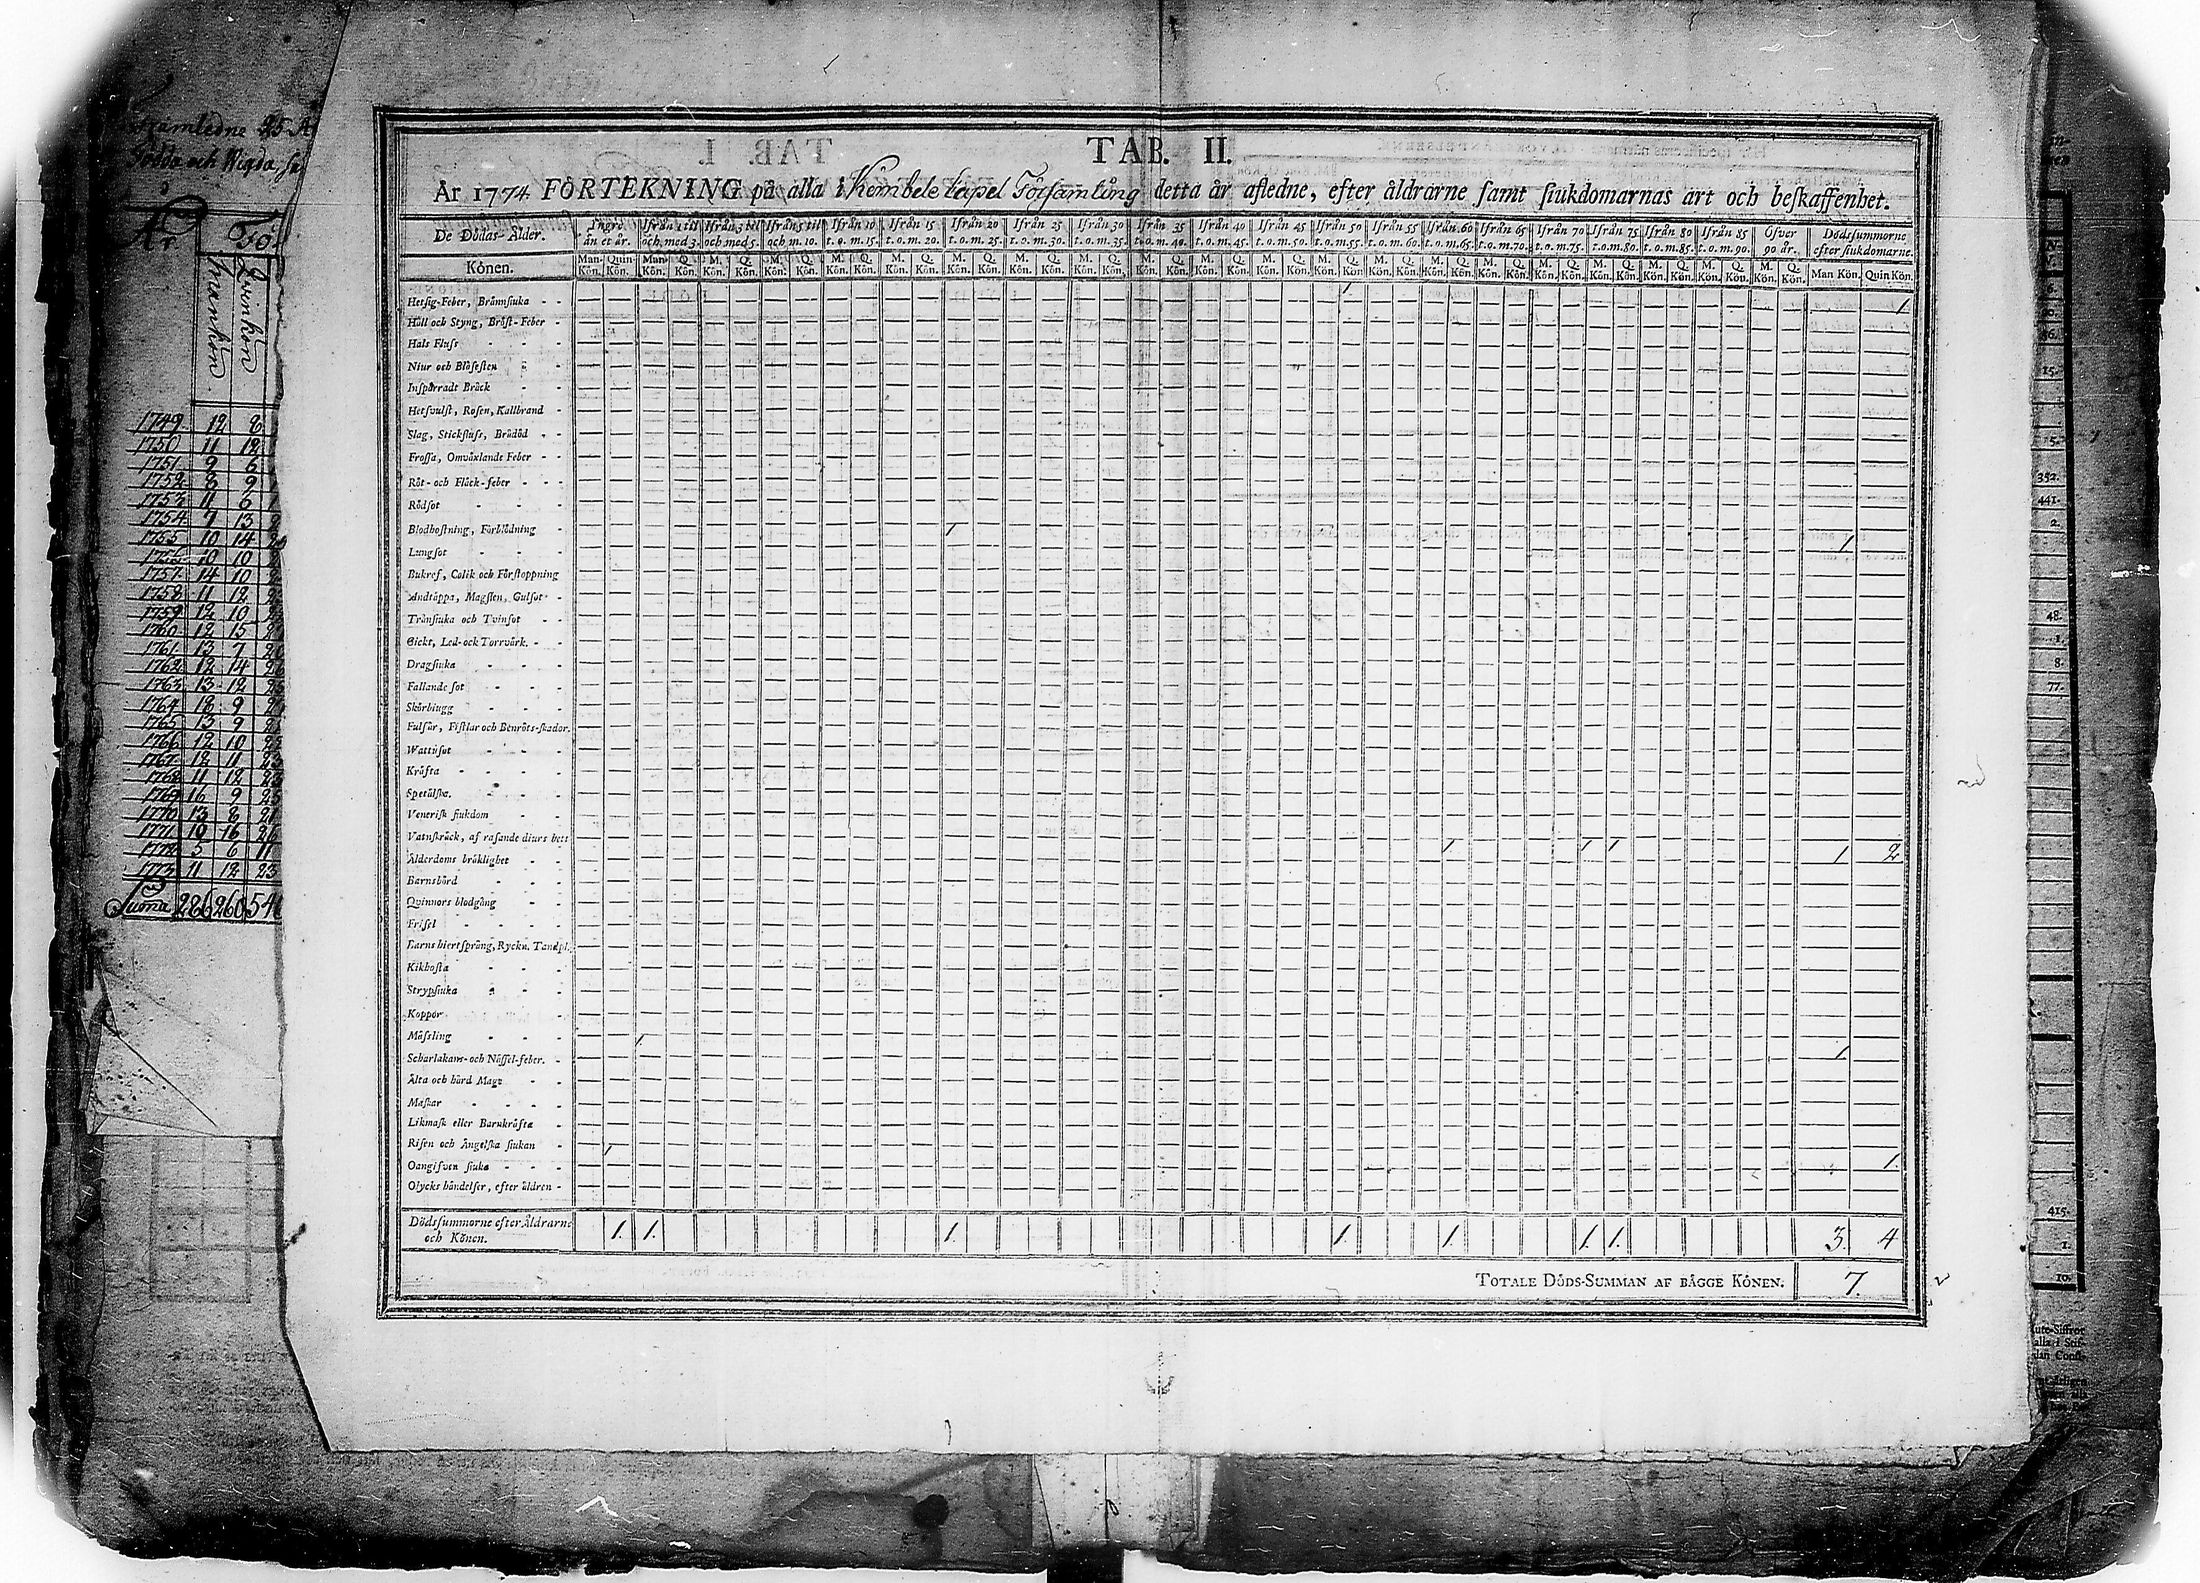 TAB. II.
År 1774. FÖRTEKNING på alla i Kembele Capel Församling detta år afledne, efter åldrarne samt siukdomarnas art och beskaffenhet.
De Dödas-Ålder. Ingre än et år. Ifrån 1 til och med 3. Ifrån 3 til och med 5. Ifrån 5 til och m. 10. Ifrån 10 t.o.m. 15. Ifrån 15 t.o.m. 20. Ifrån 20 t.o.m. 25. Ifrån 25 t.o.m. 30. Ifrån 30 t.o.m. 35. Ifrån 35 t.o.m. 40. Ifrån 40 t.o.m. 45. Ifrån 45 t.o.m. 50. Ifrån 50 t.o.m. 55. Ifrån 55 t.o.m. 60. Ifrån 60 t.o.m. 65. Ifrån 65 t.o.m. 70. Ifrån 70 t.o.m. 75. Ifrån 75 t.o.m. 80. Ifrån 80 t.o.m. 85. Ifrån 85 t.o.m. 90. Öfver 90 år. Dödssummorne efter siukdomarne.
Könen. Man-Kön. Quin-Kön. Man-Kön. Q. Kön. M. Kön. Q. Kön. M. Kön. Q. Kön. M. Kön. Q. Kön. M. Kön. Q. Kön. M. Kön. Q. Kön. M. Kön. Q. Kön. M. Kön. Q. Kön. M. Kön. Q. Kön. M. Kön. Q. Kön. M. Kön. Q. Kön. M. Kön. Q. Kön. M. Kön. Q. Kön. M. Kön. Q. Kön. M. Kön. Q. Kön. M. Kön. Q. Kön. M. Kön. Q. Kön. M. Kön. Q. Kön. M. Kön. Q. Kön. M. Kön. Q. Kön. Man Kön. Quin Kön.
Hetsig-Feber, Brännsiuka - - 1 1
Håll och Styng, Bröst-Feber -
Hals Fluss - - -
Niur och Blåsesten - -
Inspärradt Bråck - -
Hetsvulst, Rosen, Kallbrand -
Slag, Stickfluss, Brådöd - -
Frossa, Omväxlande Feber - -
Röt- och Fläck-feber - - -
Rödsot - - - -
Blodhostning, Förblödning - 1 1
Lungsot - - - -
Bukref, Colik och Förstoppning
Andtäppa, Magsten, Gulsot -
Trånsiuka och Tvinsot - -
Gickt, Led-ock Torrvärk. - -
Dragsiuka - - -
Fallande sot - - -
Skörbiugg - - -
Fulsår, Fistlar och Benröts-skador.
Wattusot - - -
Kräfta - - - -
Spetälska. - - -
Venerisk siukdom - -
Vatnskräck, af rasande diurs bett
Ålderdoms bräklighet - - 1 1 1 1 2
Barnsbörd - - -
Qvinnors blodgång - -
Frisel - - - -
Barns hiertspräng, Ryckn. Tandpl.
Kikhosta - - -
Strypsiuka - - -
Koppor
Mässling - - -
Scharlakans- och Nässel-feber. - 1 1
Älta och hård Mage - -
Maskar - - - -
Likmask eller Barnkräfta -
Risen och Ångelska siukan -
Oangifven siuka - - - 1 1.
Olycks händelser, efter åldren -
Dödssummorne efter Åldrarne och Könen. 1. 1. 1. 1. 1. 1. 1. 3. 4
TOTALE DÖDS-SUMMAN AF BÅGGE KÖNEN. 7.
Födda och Wigda,
År Fö
Mankön Quinkön
1749. 12 8
1750 11 12
1751. 9 6
1752. 8 9
1753. 11 6
1754. 7 13
1755. 10 14
10 10
1757. 14 10
1758. 11 12
1759. 12 10
1760. 12 15
1761. 13 7
1762. 12 14
1763. 13 12
1764. 18 9
1765. 13 9
1766. 12 10
1767. 12 11
1768. 11 12
1769. 16 9 25
1770. 13 8 21
1771. 10 16 26
1772. 5 6 11
1773. 11 12 23
Suma 286 260
15.
352.
441.
2.
48.
1.
8.
77.
415.
1.
10.